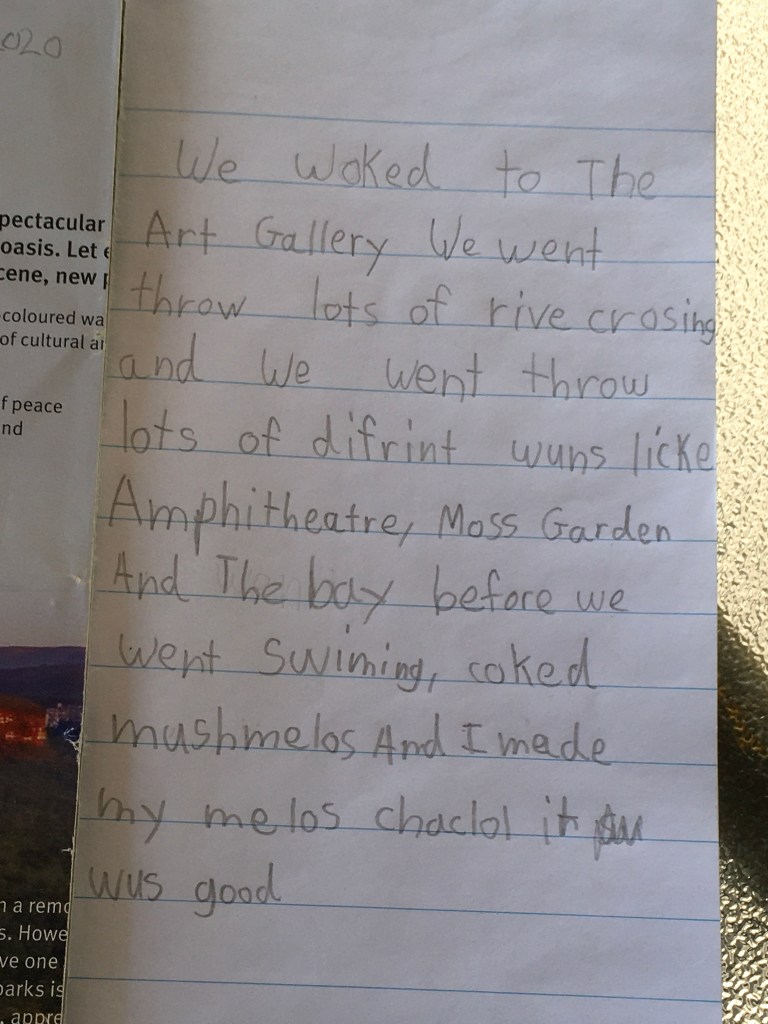 2020
pectacular
oasis. Let
cene, new
coloured wa
of cultural
f peace
nd
We Woked to The
Art Gallery We went
throw lots of rive crosing
and We went throw
lots of difrint wuns licke
Amphitheatre, Moss Garden
And The bay before we
went Swiming, coked
mushmelos And I made
my melos chaclol it
wus good
n a remo
s. Howe
ve one
parks is
, appre